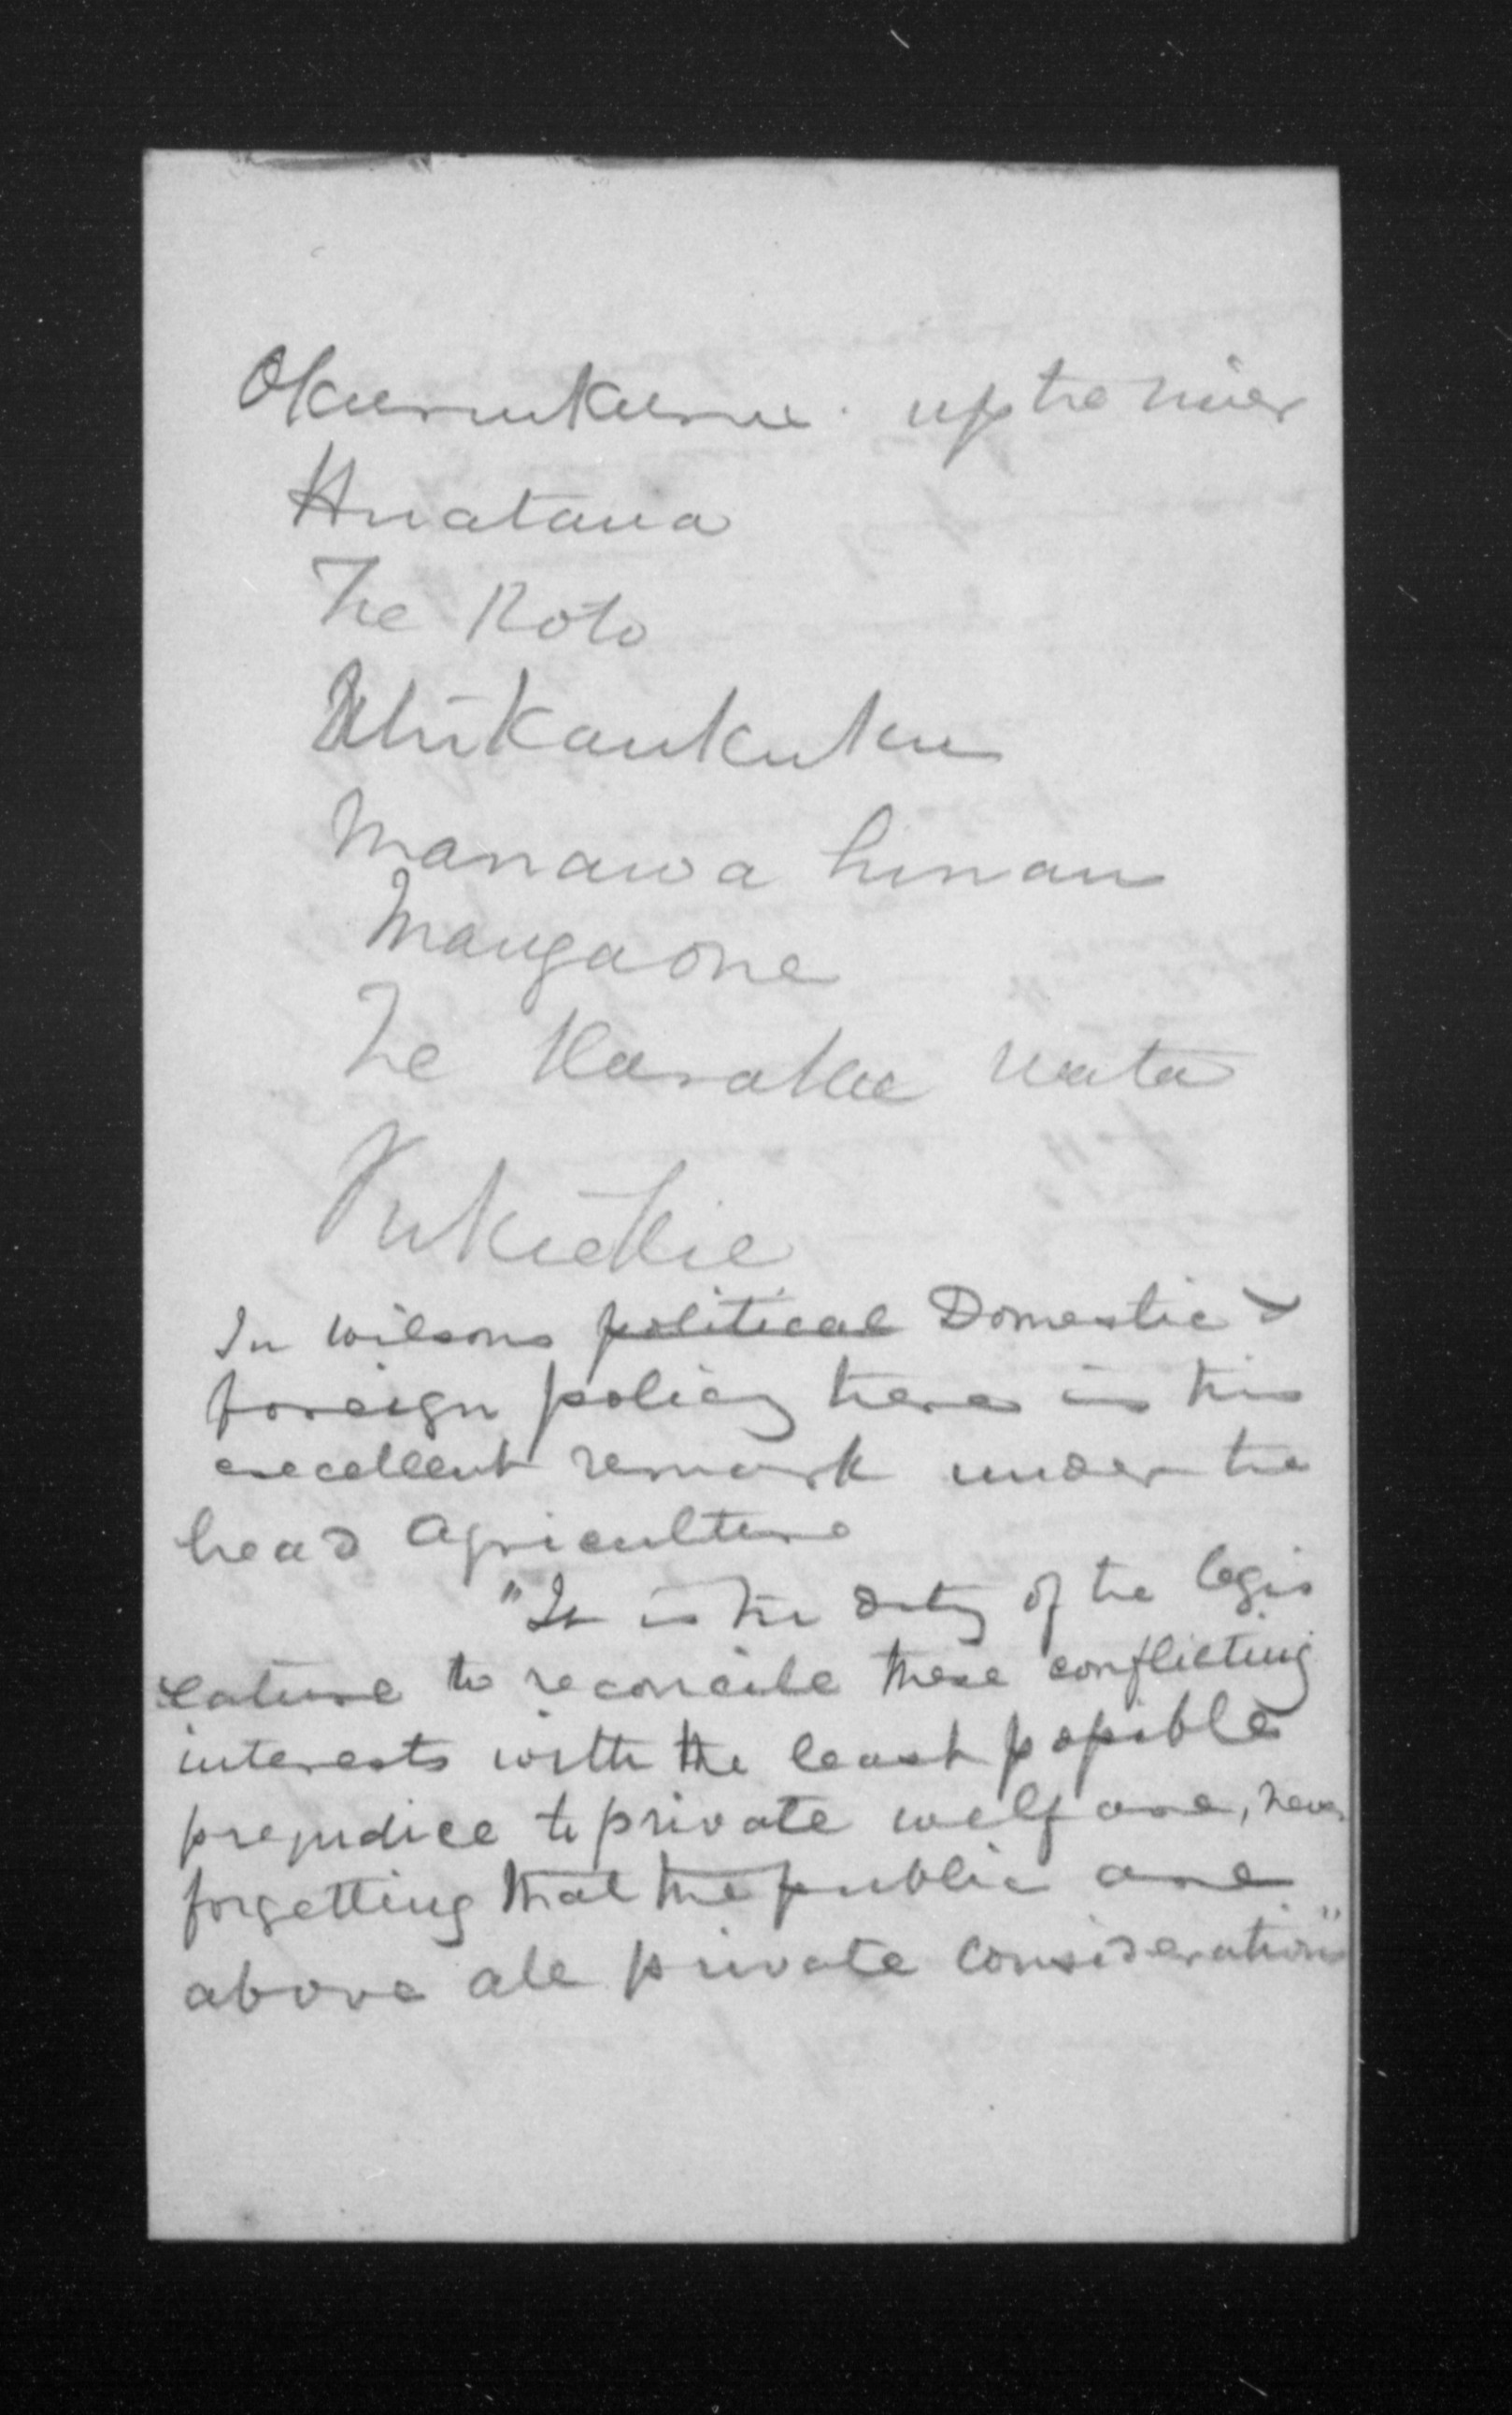 Okurukuru. up the river
Huatana
Te Roto
Manawa hinau
Mangaone
Te Karaka
Pukiekie
In Wilsons political Domestic &
foreign policy there is this
excellent remark under the
head Agriculture
"It is the duty of the legis
lature to reconcile these conflicting
interests with the least possible
prejudice to private welfare, never
forgetting that the public are
above all private considerations"